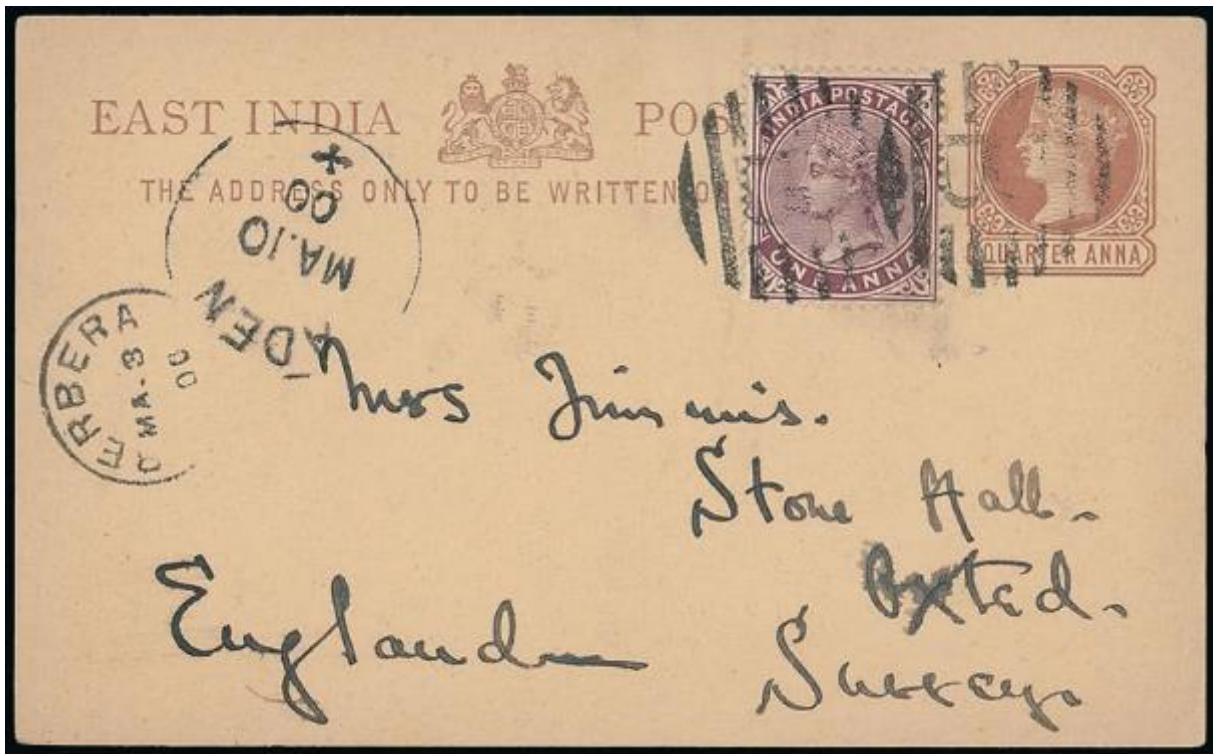 EAST INDIA POS
THE ADDRESS ONLY TO BE WRITTEN ON
INDIA POSTAGE
ONE ANNA
QUARTER ANNA
ADEN
MA.10
00
BERBERA
MA-3
00
Mrs Jimmis.
Stone Hall.
Oxted.
Surrey
England